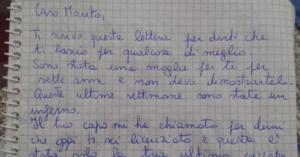 Caro Marito,
Ti scrivo questa lettera per dirti che
ti lascio per qualcosa di meglio.
Sono stata una moglie per te per
sette anni e non devo dimostrartelo.
Queste ultime settimane sono state un
inferno.
Il tuo capo mi ha chiamato per dirmi
che oggi ti sei licenziato e questa è
stata solo la tua ultima